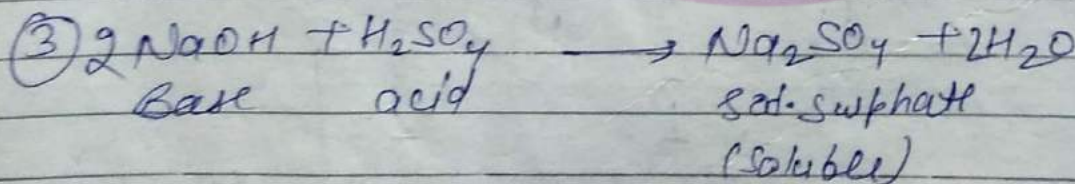 ③ 2NaOH + H₂SO₄ → Na₂SO₄ + 2H₂O
Base acid sod. sulphate
(soluble)